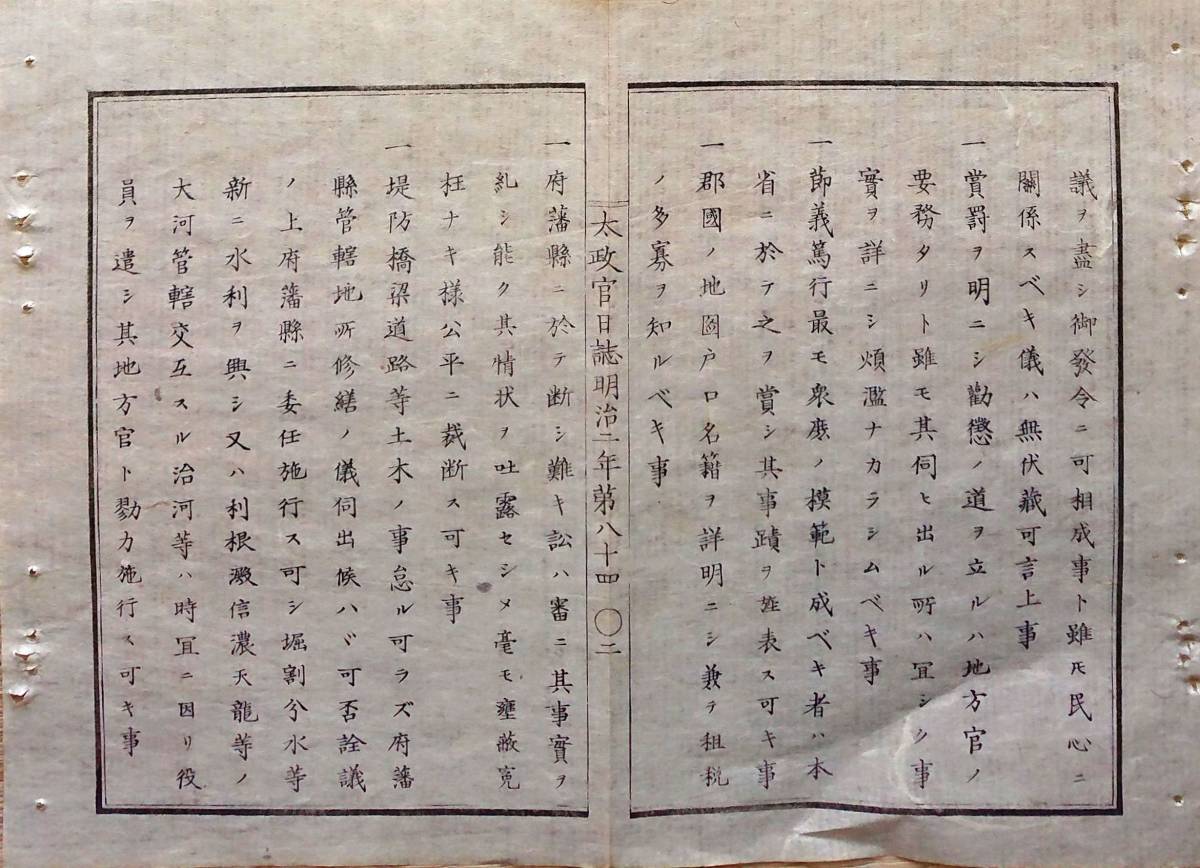 議ヲ盡シ御發令ニ可相成事ト雖𪜈民心ニ
關係スベキ儀ハ無伏藏可言上事
一賞罰ヲ明ニシ勸懲ノ道ヲ立ルハ地方官ノ
要務タリト雖モ其伺ヒ出ル所ハ冝シク事
實ヲ詳ニシ煩濫ナカラシムベキ事
一節義篤行最モ衆庶ノ模範ト成ベキ者ハ本
省ニ於テ之ヲ賞シ其事蹟ヲ旌表ス可キ事
一郡國ノ地圖戸口名籍ヲ詳明ニシ兼テ租税
ノ多寡ヲ知ルベキ事
太政官日誌明治二年第八十四〇二
一府藩縣ニ於テ断シ難キ訟ハ審ニ其事實ヲ
糺シ能ク其情状ヲ吐露セシメ毫モ壅蔽寃
枉ナキ様公平ニ裁断ス可キ事
一堤防橋梁道路等土木ノ事怠ル可ラズ府藩
縣管轄地所修繕ノ儀伺出候ハヾ可否詮議
ノ上府藩縣ニ委任施行ス可シ堀割分水等
新ニ水利ヲ興シ又ハ利根澱信濃天龍等ノ
大河管轄交互スル治河等ハ時冝ニ因リ役
員ヲ遣シ其地方官ト勠力施行ス可キ事